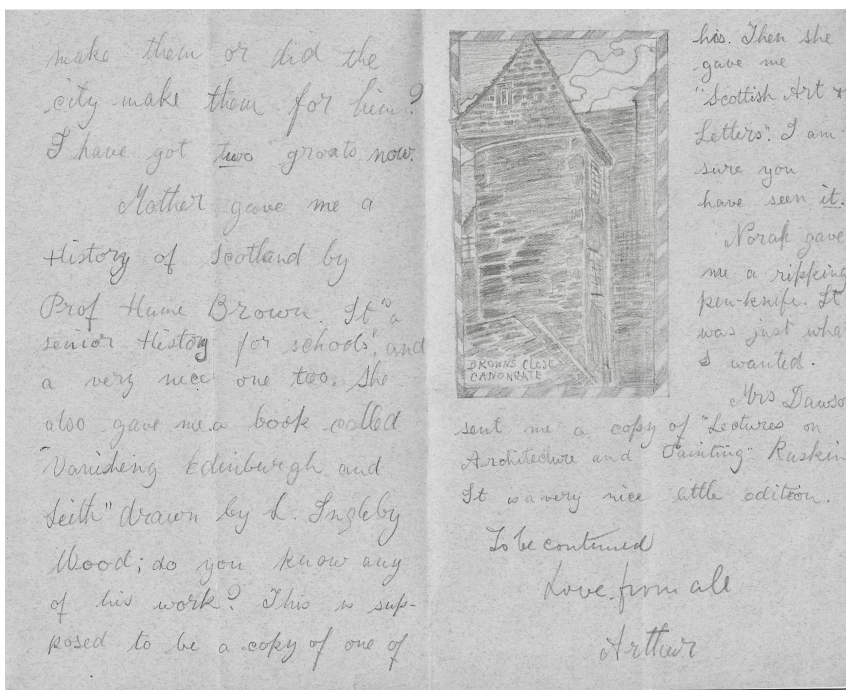 make them or did the
city make them for him?
I have got two groats now.
Mother gave me a
History of Scotland by
Prof Hume Brown. It "a
senior History for schools", and
a very nice one too. She
also gave me a book called
"Vanishing Edinburgh and
Leith" drawn by L. Ingleby
Wood; do you know any
of his work? This is sup-
posed to be a copy of one of
BROWNS CLOSE
CANONGATE
his. Then she
gave me
"Scottish Art &
Letters". I am
sure you
have seen it.
Norah gave
me a ripping
pen-knife. It
was just wha
I wanted.
Mrs Dawso
sent me a copy of "Lectures on
Architecture and Painting" Ruskin
It is a very nice little edition.
To be continued
Love from all
Arthur